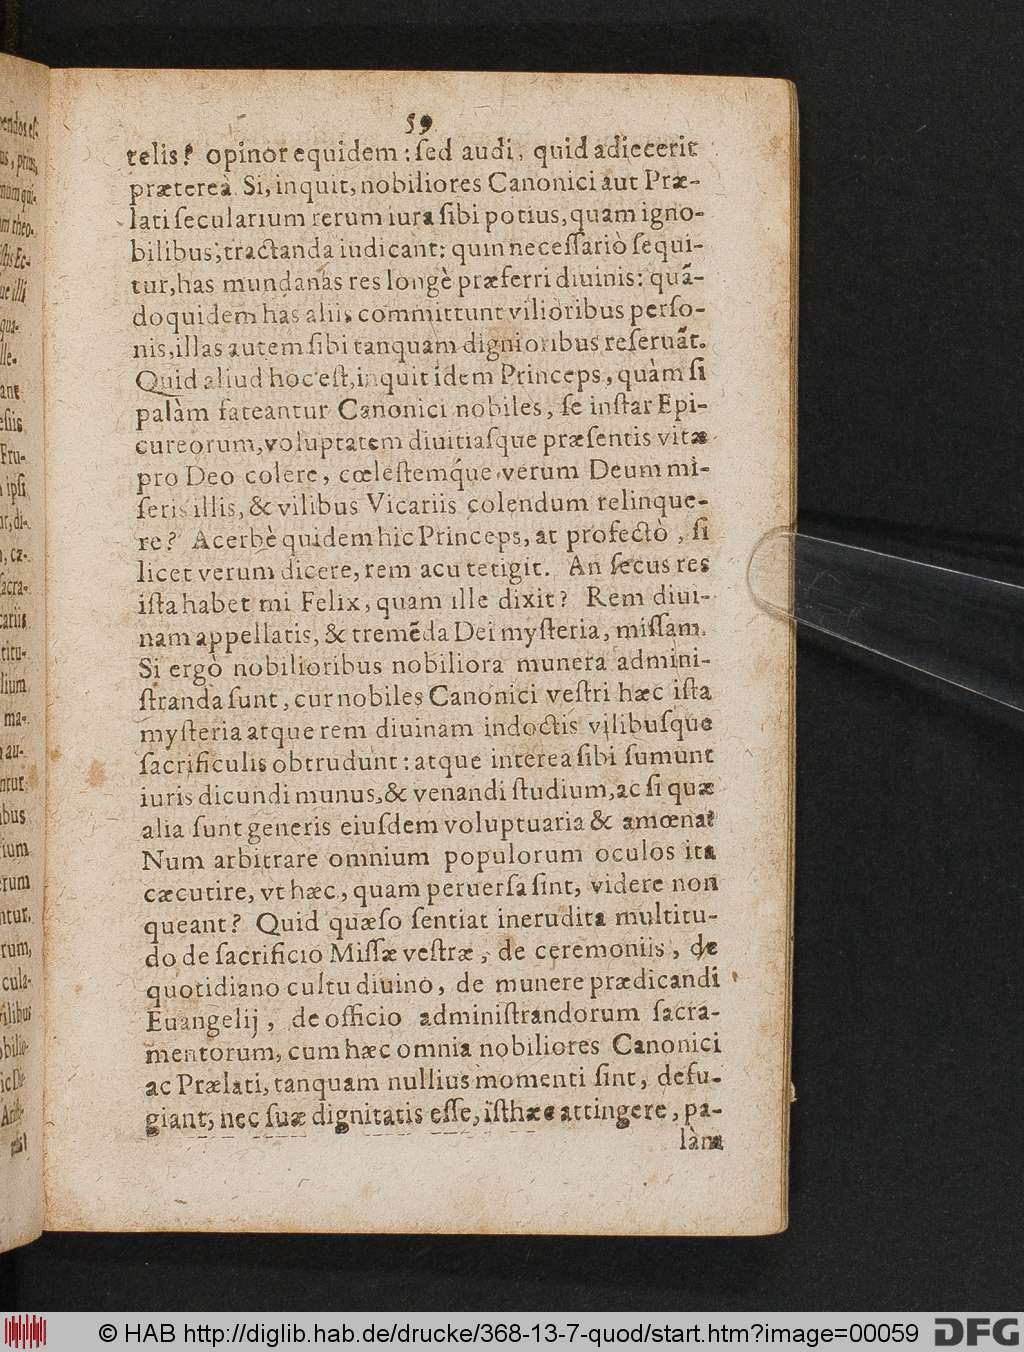 59
telis? opinor equidem: ſed audi, quid adiecerit
prætereà. Si, inquit, nobiliores Canonici aut Præ-
lati ſecularium rerum iura ſibi potius, quam igno-
bilibus, tractanda iudicant: quin neceſſariò ſequi-
tur, has mundanas res longè præferri diuinis: quā-
doquidem has aliis committunt vilioribus perſo-
nis, illas autem ſibi tanquam dignioribus reſeruāt.
Quid aliud hoc eſt, inquit idem Princeps, quàm ſi
palàm fateantur Canonici nobiles, ſe inſtar Epi-
cureorum, voluptatem diuitiaſque præſentis vitæ
pro Deo colere, cœleſtemq́ue verum Deum mi-
ſeris illis, & vilibus Vicariis colendum relinque-
re? Acerbè quidem hic Princeps, at profectò, ſi
licet verum dicere, rem acu tetigit. An ſecus res
iſta habet mi Felix, quam ille dixit? Rem diui-
nam appellatis, & tremēda Dei myſteria, miſſam.
Si ergò nobilioribus nobiliora munera admini-
ſtranda ſunt, cur nobiles Canonici veſtri hæc iſta
myſteria atque rem diuinam indoctis vilibuſque
ſacrificulis obtrudunt: atque interea ſibi ſumunt
iuris dicundi munus, & venandi ſtudium, ac ſi quæ
alia ſunt generis eiuſdem voluptuaria & amœna?
Num arbitrare omnium populorum oculos ita
cæcutire, vt hæc, quam peruerſa ſint, videre non
queant? Quid quæſo ſentiat inerudita multitu-
do de ſacrificio Miſſæ veſtræ, de ceremoniis, de
quotidiano cultu diuino, de munere prædicandi
Euangelij, de officio adminiſtrandorum ſacra-
mentorum, cum hæc omnia nobiliores Canonici
ac Prælati, tanquam nullius momenti ſint, defu-
giant, nec ſuæ dignitatis eſſe, iſthæc attingere, pa-
làm
© HAB http://diglib.hab.de/drucke/368-13-7-quod/start.htm?image=00059
DFG